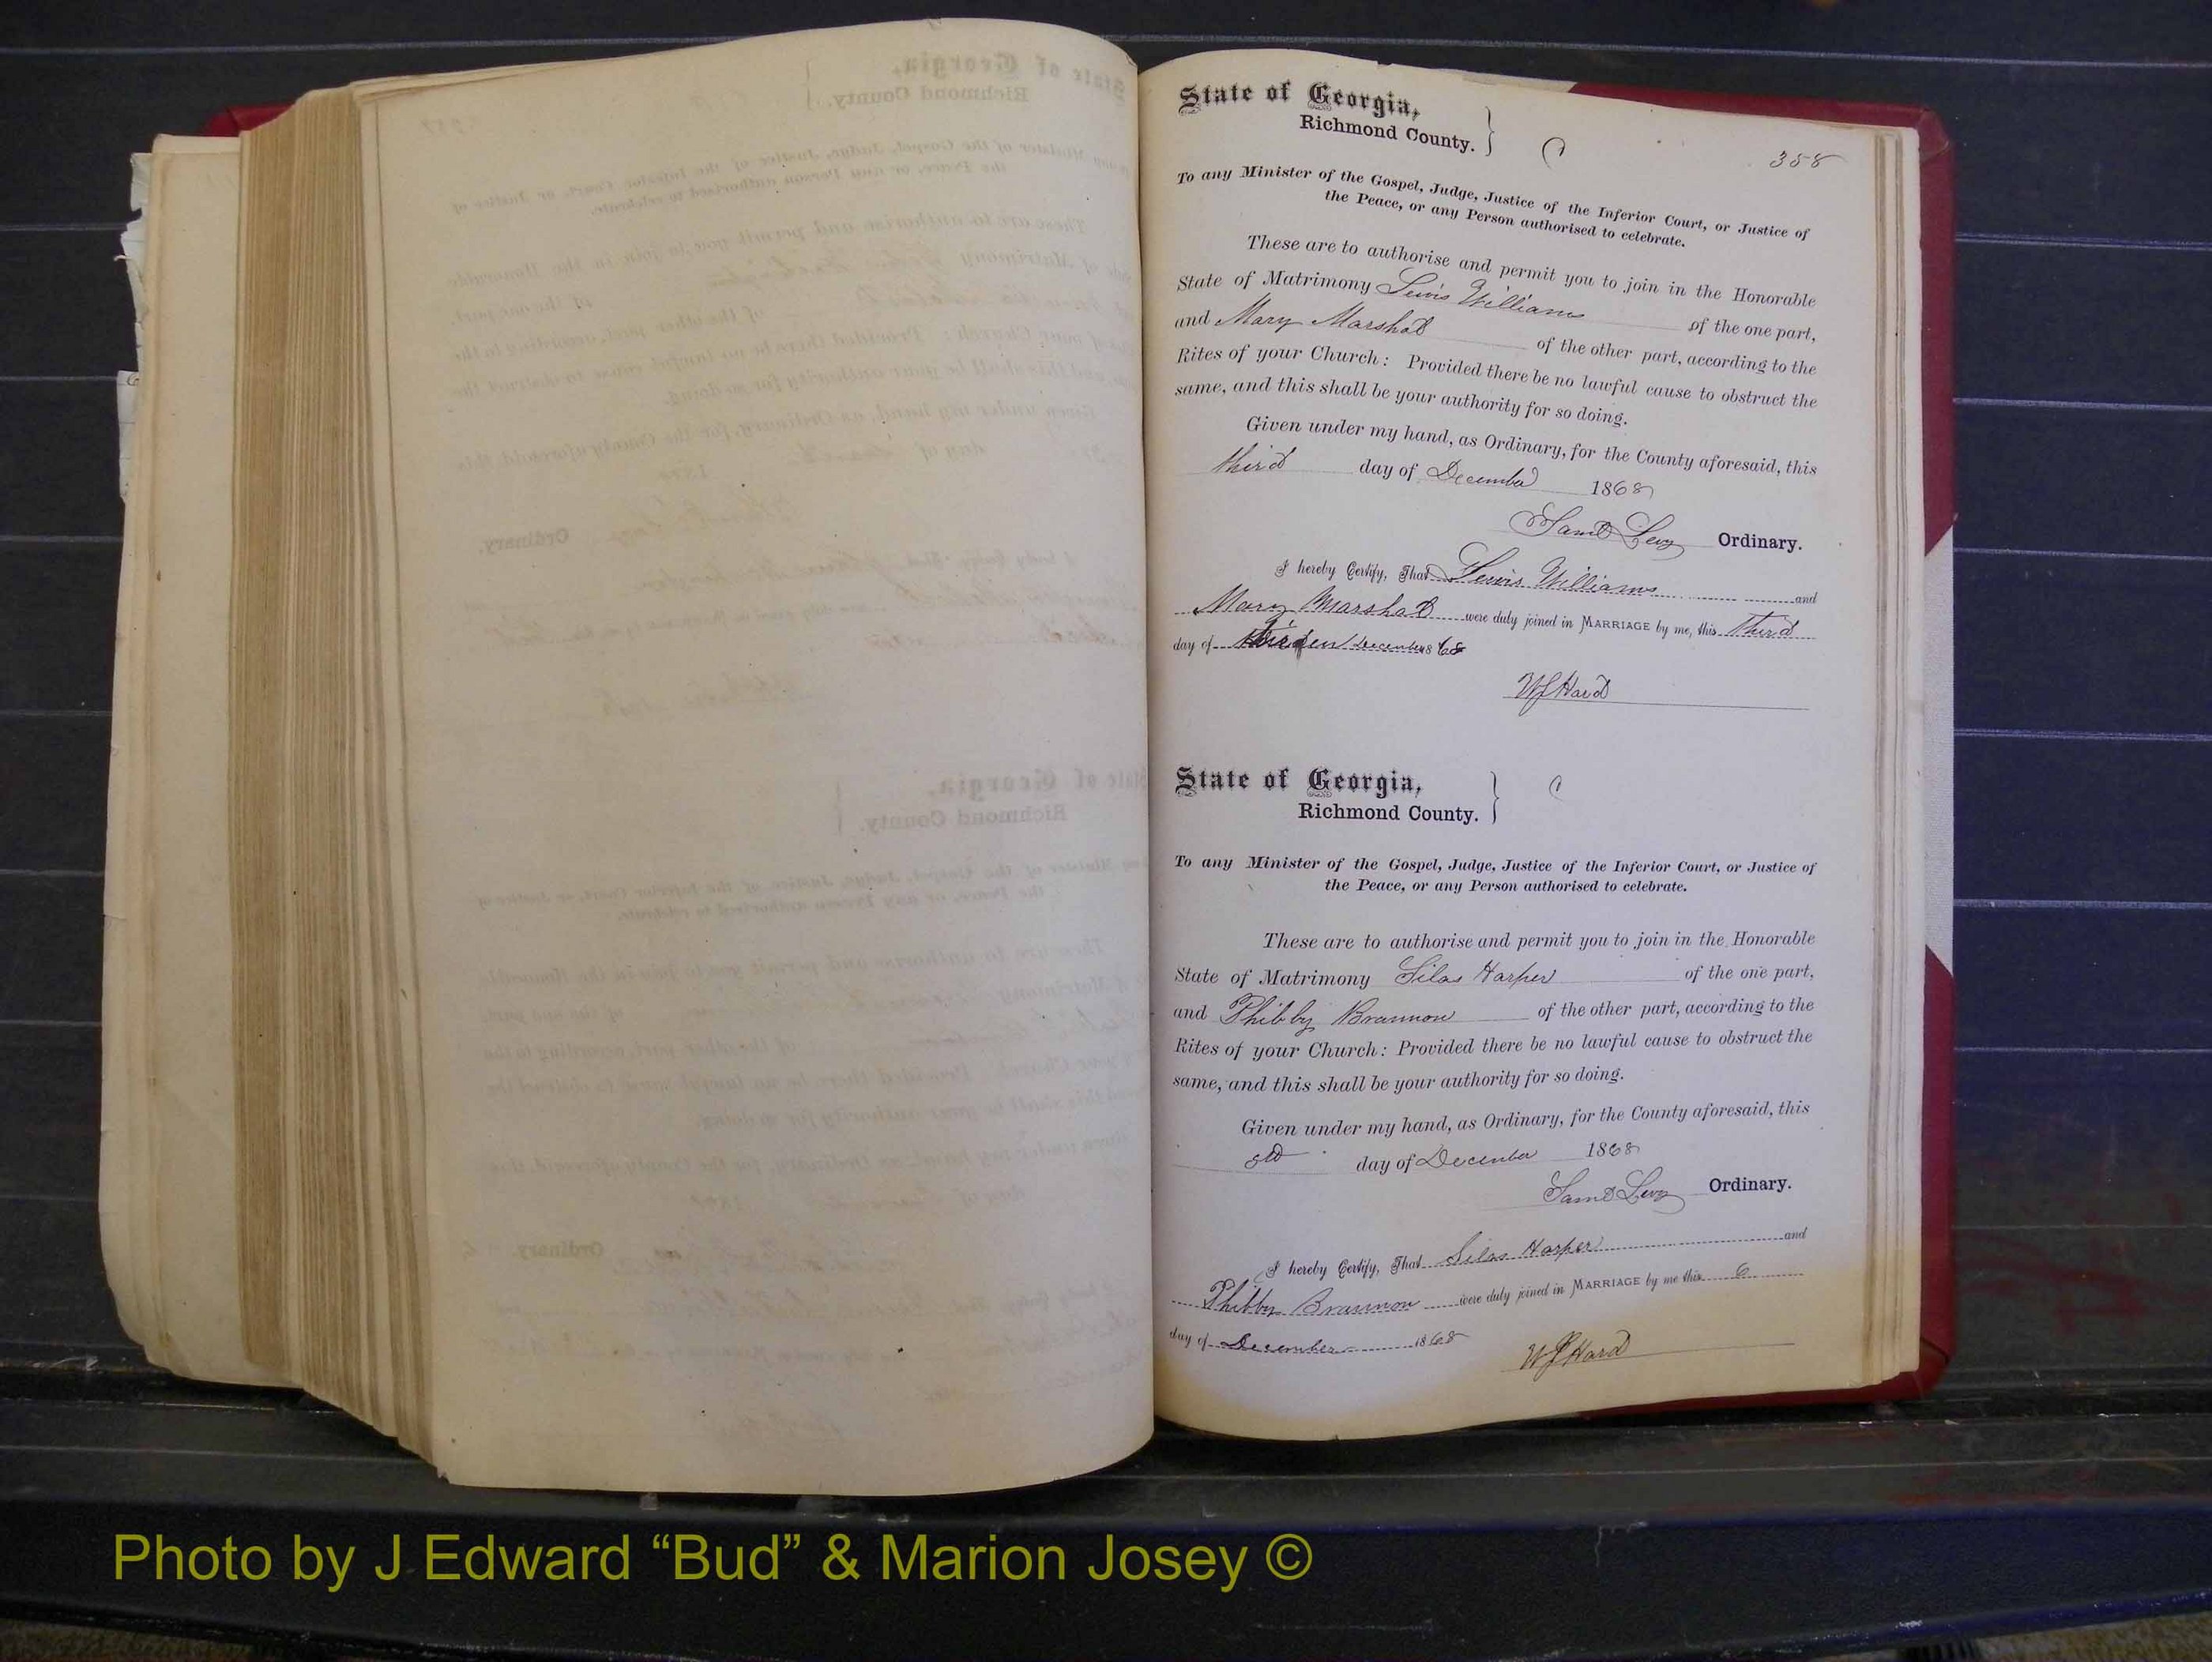 State of Georgia,
Richmond County. } C 358
To any Minister of the Gospel, Judge, Justice of the Inferior Court, or Justice of
the Peace, or any Person authorised to celebrate.
These are to authorise and permit you to join in the Honorable
State of Matrimony Lewis Williams of the one part,
and Mary Marshal of the other part, according to the
Rites of your Church: Provided there be no lawful cause to obstruct the
same, and this shall be your authority for so doing.
Given under my hand, as Ordinary, for the County aforesaid, this
third day of December 1868
Saml Levy Ordinary.
I hereby Certify, That Lewis Williams and
Mary Marshal were duly joined in MARRIAGE by me, this third
day of December 1868
W J Hard
State of Georgia,
Richmond County. } C
To any Minister of the Gospel, Judge, Justice of the Inferior Court, or Justice of
the Peace, or any Person authorised to celebrate.
These are to authorise and permit you to join in the Honorable
State of Matrimony Silas Harper of the one part,
and Phibby Brannon of the other part, according to the
Rites of your Church: Provided there be no lawful cause to obstruct the
same, and this shall be your authority for so doing.
Given under my hand, as Ordinary, for the County aforesaid, this
day of December 1868
Saml Levy Ordinary.
I hereby Certify, That Silas Harper and
Phibby Brannon were duly joined in MARRIAGE by me this 6
day of December 1868
W J Hard
Photo by J Edward “Bud” & Marion Josey ©